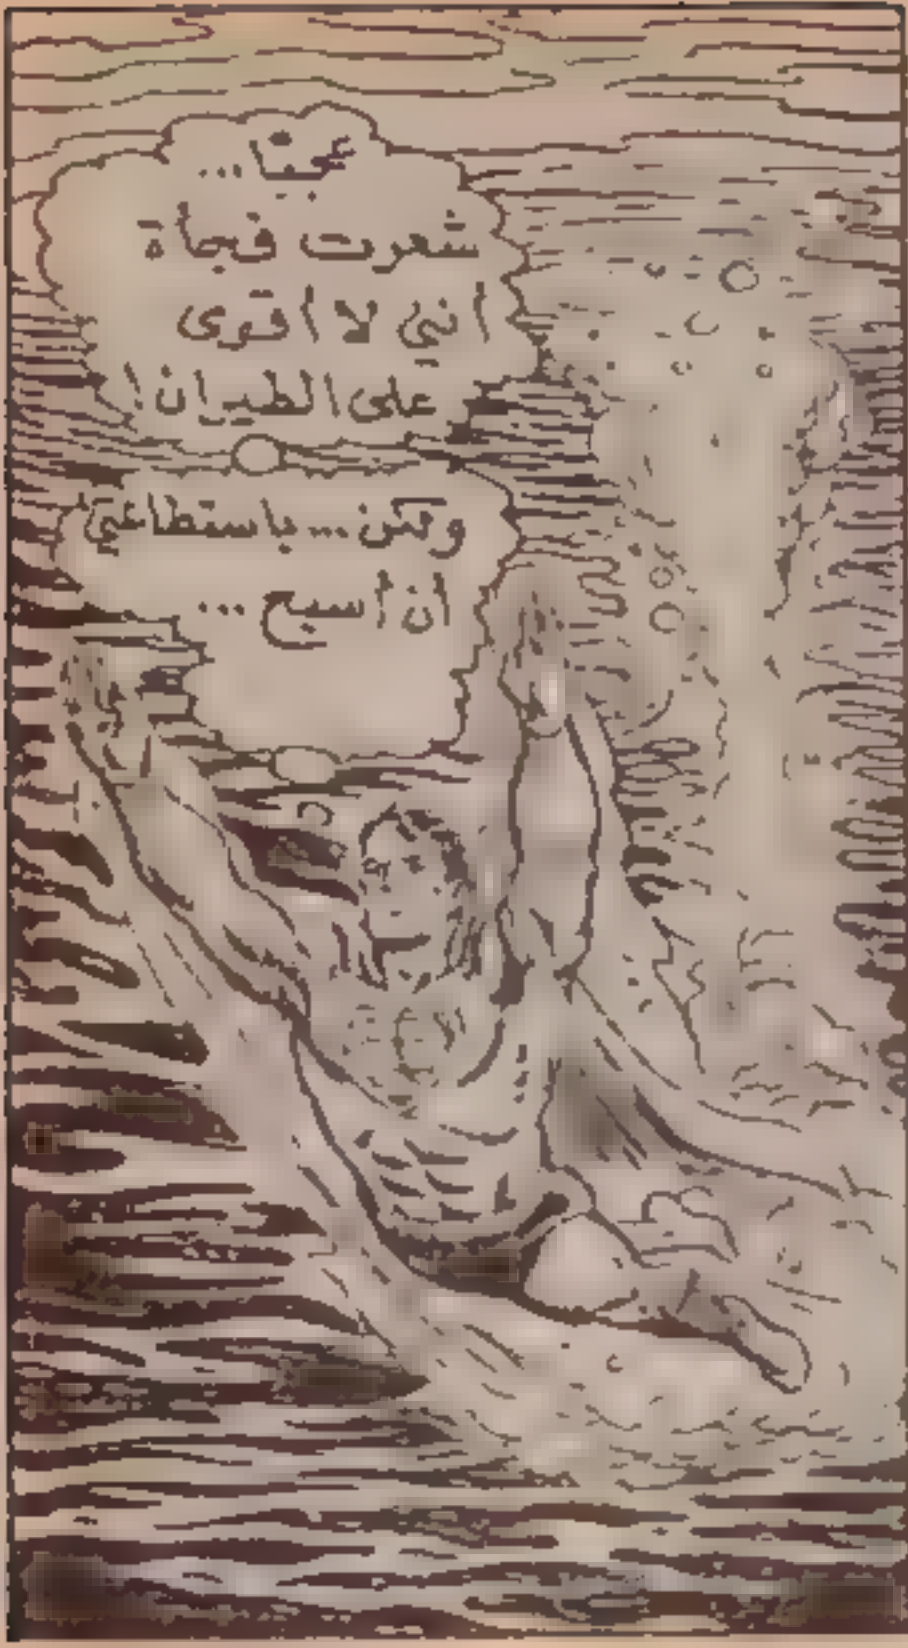 عجبًا...
شعرت فجأة
أنني لا أقوى
على الطيران!
ولكن... باستطاعتي
أن أسبح...